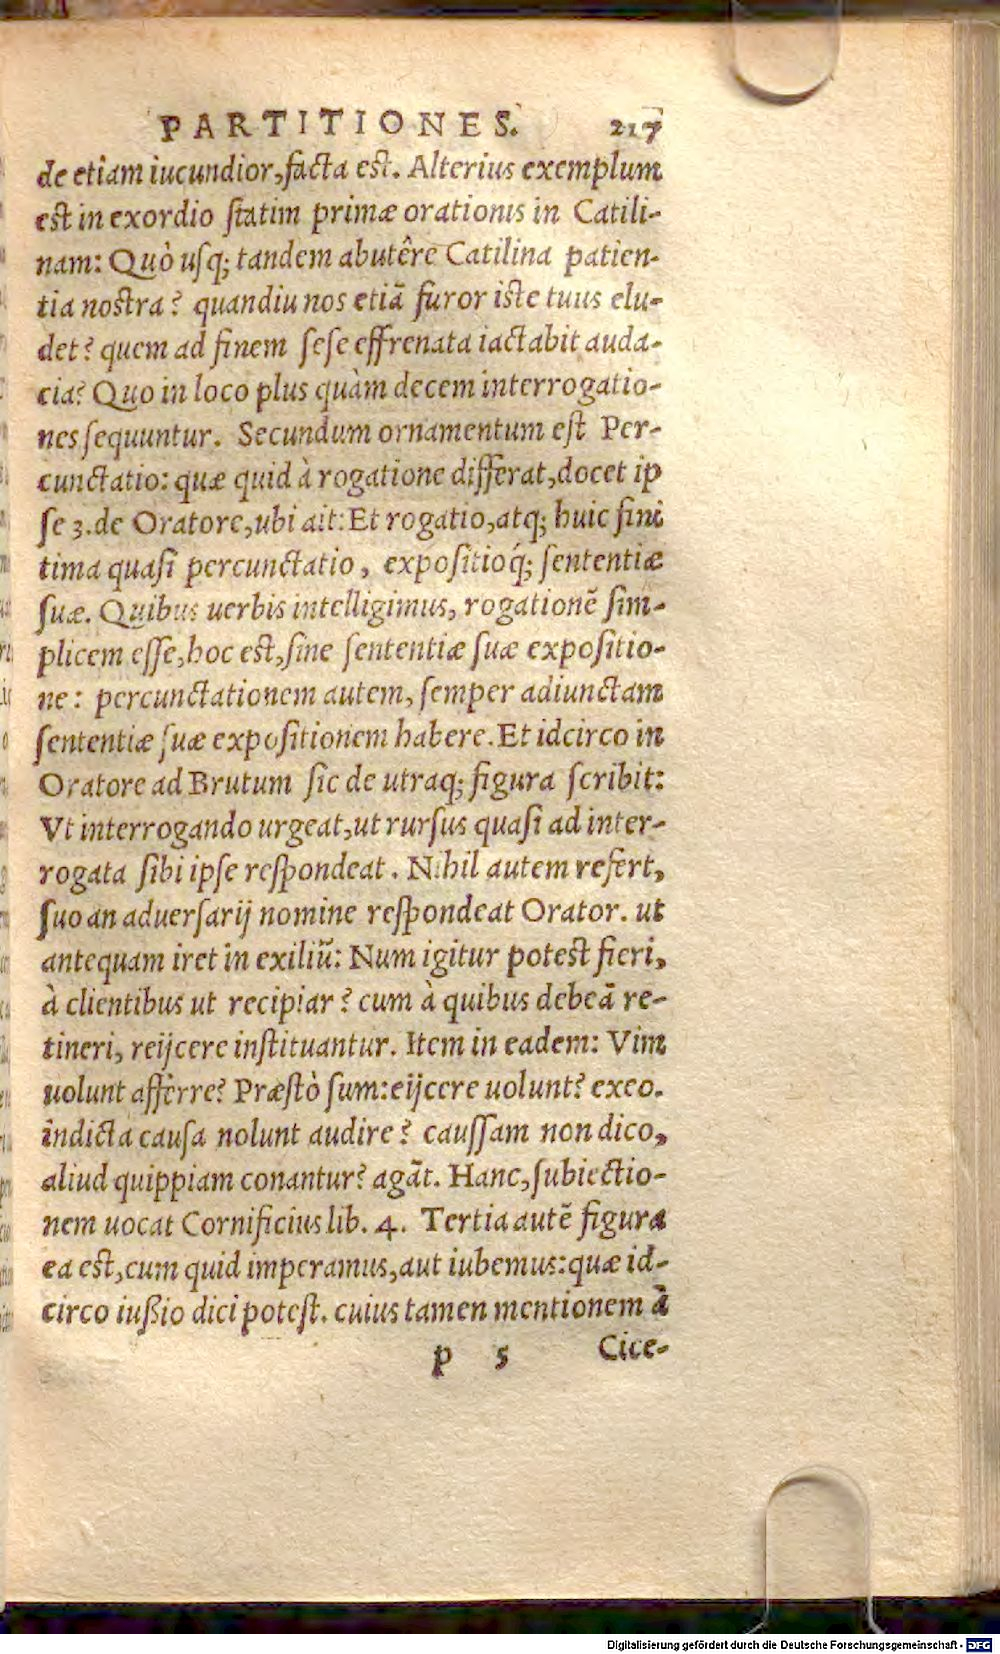 PARTITIONES. 217
de etiam iucundior, facta est. Alterius exemplum
est in exordio statim primæ orationis in Catili-
nam: Quò usq; tandem abutêre Catilina patien-
tia nostra? quandiu nos etiã furor iste tuus elu-
det? quem ad finem sese effrenata iactabit auda-
cia? Quo in loco plus quàm decem interrogatio-
nes sequuntur. Secundum ornamentum est Per-
cunctatio: quæ quid à rogatione differat, docet ip
se 3. de Oratore, ubi ait: Et rogatio, atq; huic fini
tima quasi percunctatio, expositioq́; sententiæ
suæ. Quibus uerbis intelligimus, rogationē sim-
plicem esse, hoc est, sine sententiæ suæ expositio-
ne: percunctationem autem, semper adiunctam
sententiæ suæ expositionem habere. Et idcirco in
Oratore ad Brutum sic de utraq; figura scribit:
Vt interrogando urgeat, ut rursus quasi ad inter-
rogata sibi ipse respondeat. Nihil autem refert,
suo an aduersarij nomine respondeat Orator. ut
antequam iret in exiliũ: Num igitur potest fieri,
à clientibus ut recipiar? cum à quibus debeã re-
tineri, reijcere instituantur. Item in eadem: Vim
uolunt afferre? Præstò sum: eijcere uolunt? exeo.
indicta causa nolunt audire? caussam non dico,
aliud quippiam conantur? agãt. Hanc, subiectio-
nem uocat Cornificius lib. 4. Tertia autē figura
ea est, cum quid imperamus, aut iubemus: quæ id-
circo iußio dici potest. cuius tamen mentionem à
p 5 Cice-
Digitalisierung gefördert durch die Deutsche Forschungsgemeinschaft - DFG